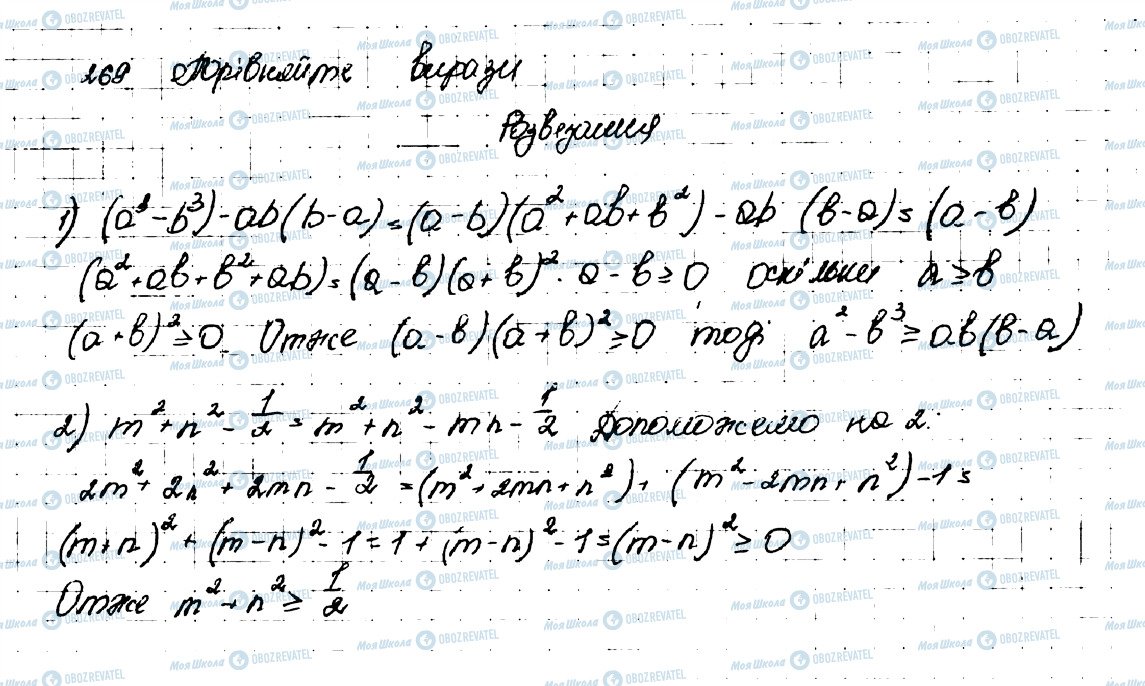 269 Порівняйте вирази
Розвезання
1) (a³ - b³) - ab(b - a) = (a - b)(a² + ab + b²) - ab (b - a) = (a - b)
(a² + ab + b² + ab) = (a - b)(a + b)². a - b ≥ 0 оскільки a ≥ b
(a + b)² ≥ 0 Отже (a - b)(a + b)² ≥ 0 тоді a² - b³ ≥ ab(b - a)
2) m² + n² - 1/2 = m² + n² - mn - 1/2 Допоможемо на 2.
2m² + 2n² + 2mn - 1/2 = (m² + 2mn + n²) + (m² - 2mn + n²) - 1 =
(m + n)² + (m - n)² - 1 = 1 + (m - n)² - 1 = (m - n)² ≥ 0
Отже m² + n² ≥ 1/2